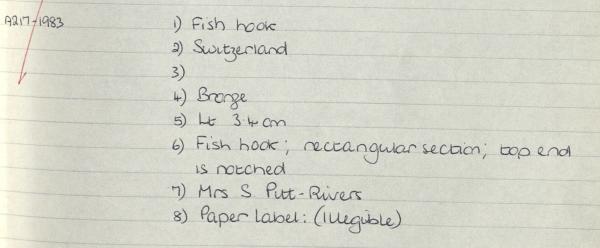 A217-1983
1) Fish hook
2) Switzerland
3)
4) Bronze
5) Lt 3.4cm
6) Fish hook; rectangular section; top end
is notched
7) Mrs S Pitt-Rivers
8) Paper label: (Illegible)